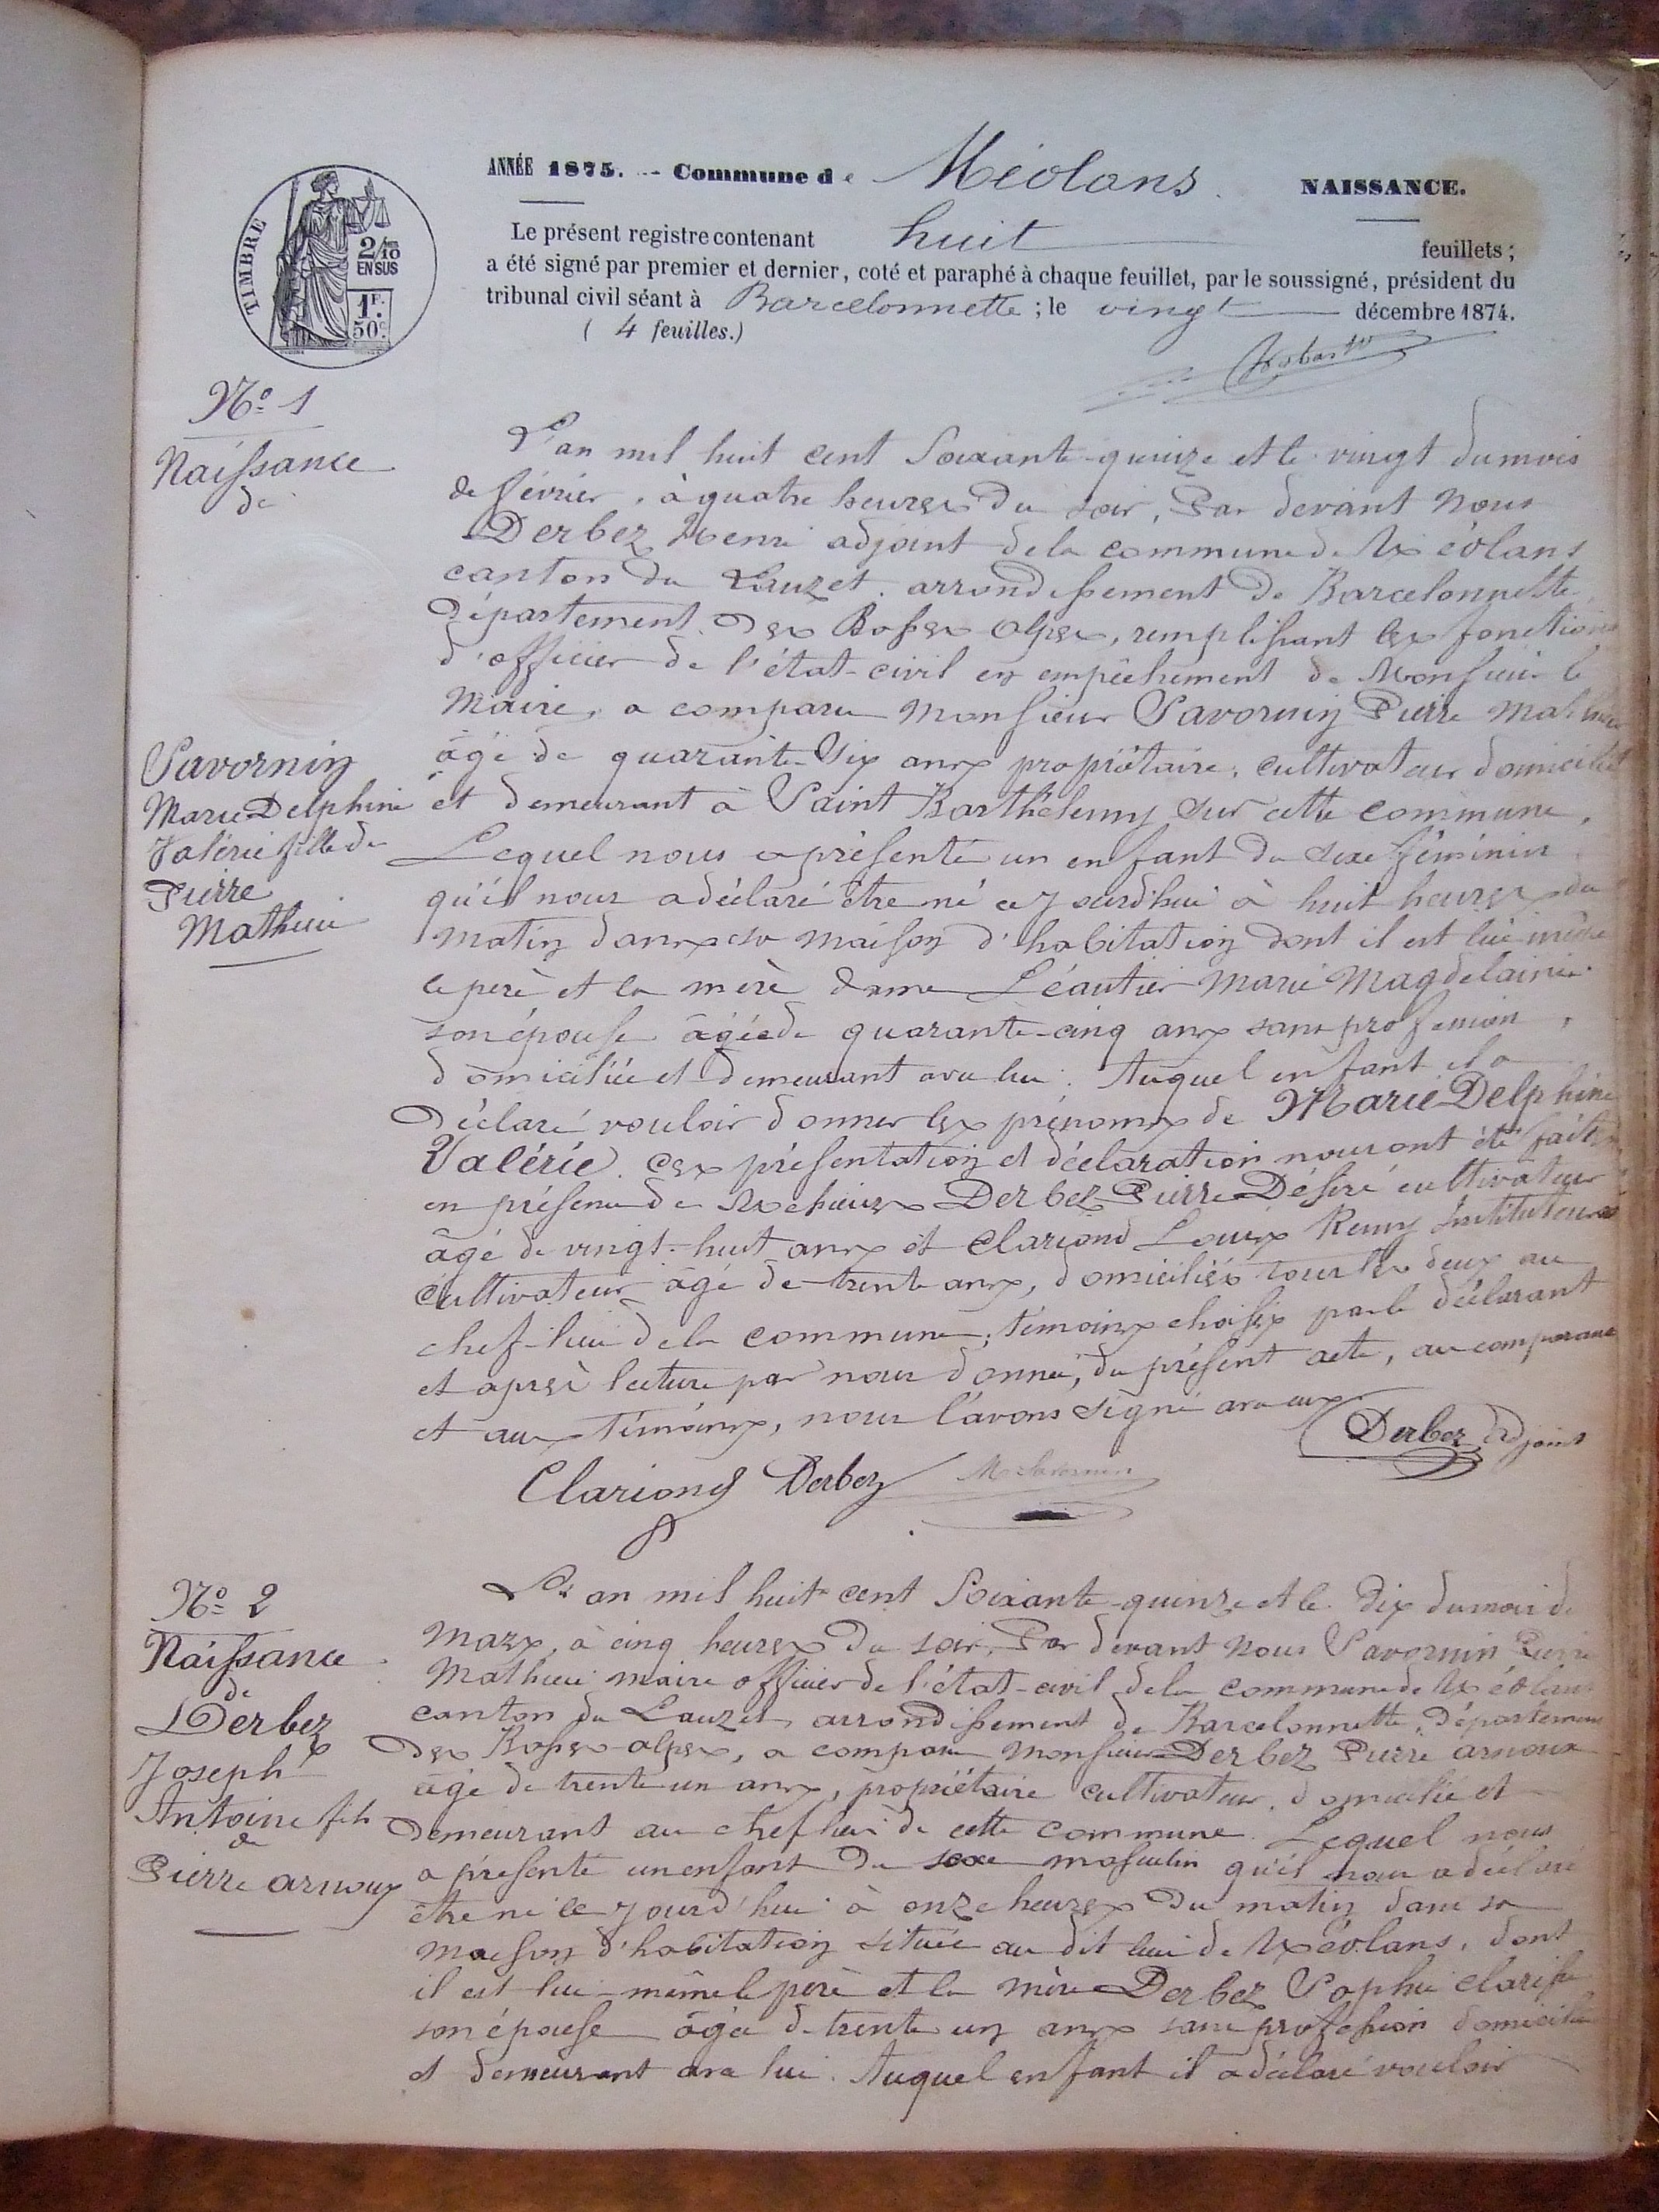 ANNÉE 1875. -- Commune de Méolans NAISSANCE.
Le présent registre contenant huit feuillets ;
a été signé par premier et dernier, coté et paraphé à chaque feuillet, par le soussigné, président du
tribunal civil séant à Barcelonnette ; le vingt décembre 1874.
( 4 feuilles.)
TIMBRE
2/10 EN SUS
1F. 50c
No 1
Naissance
de
Savornin
Marie Delphine
Valérie fille de
Pierre
Mathieu
L'an mil huit cent Soixante-quinze et le vingt du mois
de février, à quatre heures du soir, Par devant Nous
Derbez Henri adjoint de la commune de Méolans
canton du Lauzet, arrondissement de Barcelonnette,
département des Basses Alpes, remplissant les fonctions
d'officier de l'état-civil en empêchement de Monsieur le
Maire, a comparu Monsieur Savornin Pierre Mathieu
âgé de quarante-Six ans propriétaire, cultivateur domicilié
et demeurant à Saint Barthélemy sur cette commune,
Lequel nous a présenté un enfant du sexe féminin
qu'il nous a déclaré être né ce jourd'hui à huit heures du
matin dans sa maison d'habitation dont il est lui même
le père et la mère dame Léautier Marie Magdelaine
son épouse âgée de quarante-cinq ans sans profession,
domiciliée et demeurant avec lui. Auquel enfant il a
déclaré vouloir donner les prénoms de Marie Delphine
Valérie. Ces présentation et déclaration nous ont été faites
en présence de Messieurs Derbez Pierre Désiré cultivateur
âgé de vingt-huit ans et Clariond Louis Remy Instituteur
cultivateur âgé de trente ans, domiciliés tous les deux au
chef-lieu de la commune, témoins choisis par le déclarant
et après lecture par nous donnée, du présent acte, au comparant
et aux témoins, nous l'avons signé avec eux
Derbez adjoint
Clariond Derbez M Savornin
No 2
Naissance
de
Derbez
Joseph
Antoine fils
de
Pierre arnoux
L'an mil huit cent Soixante-quinze et le dix du mois de
Mars, à cinq heures du soir, Par devant Nous Savornin Pierre
Mathieu maire officier de l'état-civil de la commune de Méolans
canton du Lauzet, arrondissement de Barcelonnette, département
des Basses-alpes, a comparu Monsieur Derbez Pierre arnoux
âgé de trente un ans, propriétaire cultivateur, domicilié et
demeurant au chef lieu de cette commune. Lequel nous
a présenté un enfant du sexe masculin qu'il nous a déclaré
être né ce jourd'hui à onze heures du matin dans sa
maison d'habitation située au dit lieu de Méolans, dont
il est lui-même le père et la mère Derbez Sophie Clarisse
son épouse âgée de trente un ans sans profession domiciliée
et demeurant avec lui. Auquel enfant il a déclaré vouloir